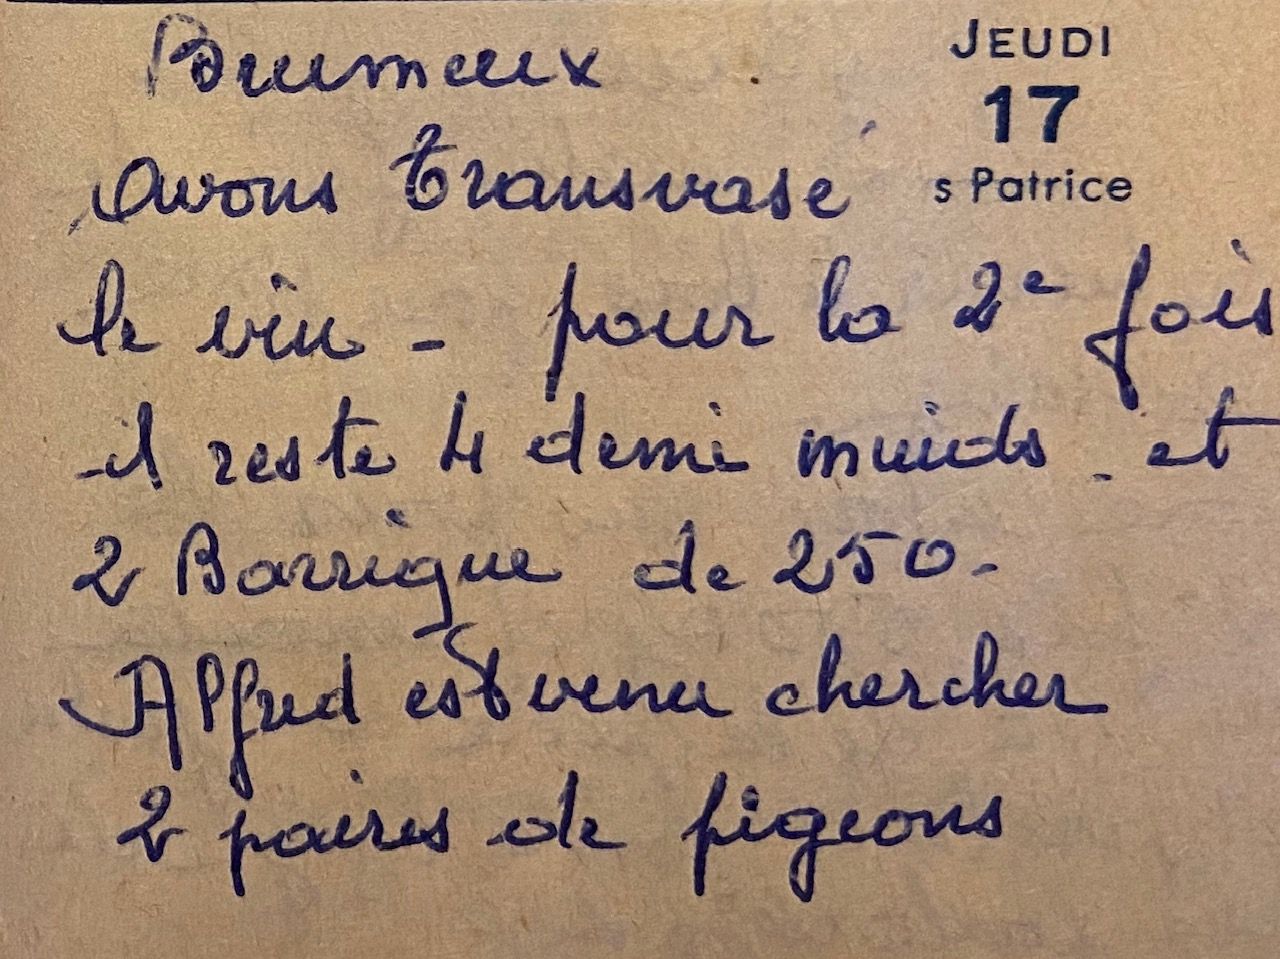 Brumeux
JEUDI
17
s Patrice
avons transvasé
le vin - pour la 2e fois
il reste 4 demi muids. et
2 Barrique de 250-
Alfred est venu chercher
2 paires de pigeons